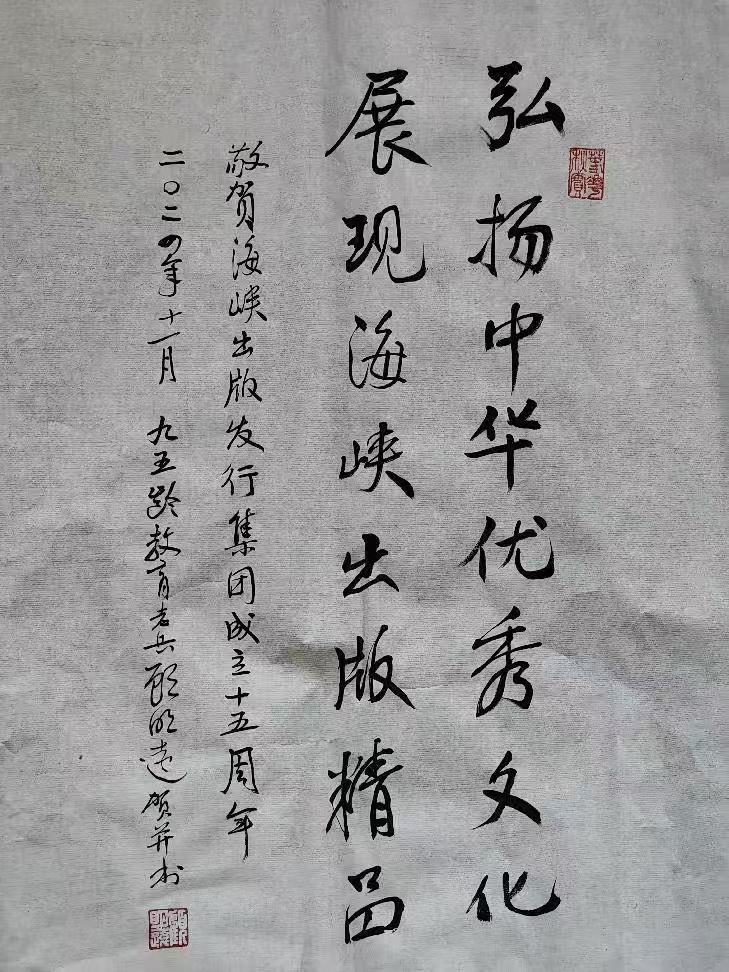 弘扬中华优秀文化
展现海峡出版精品
敬贺海峡出版发行集团成立十五周年
二〇二四年十一月 九五龄教育老兵顾明远贺并书
顾明远